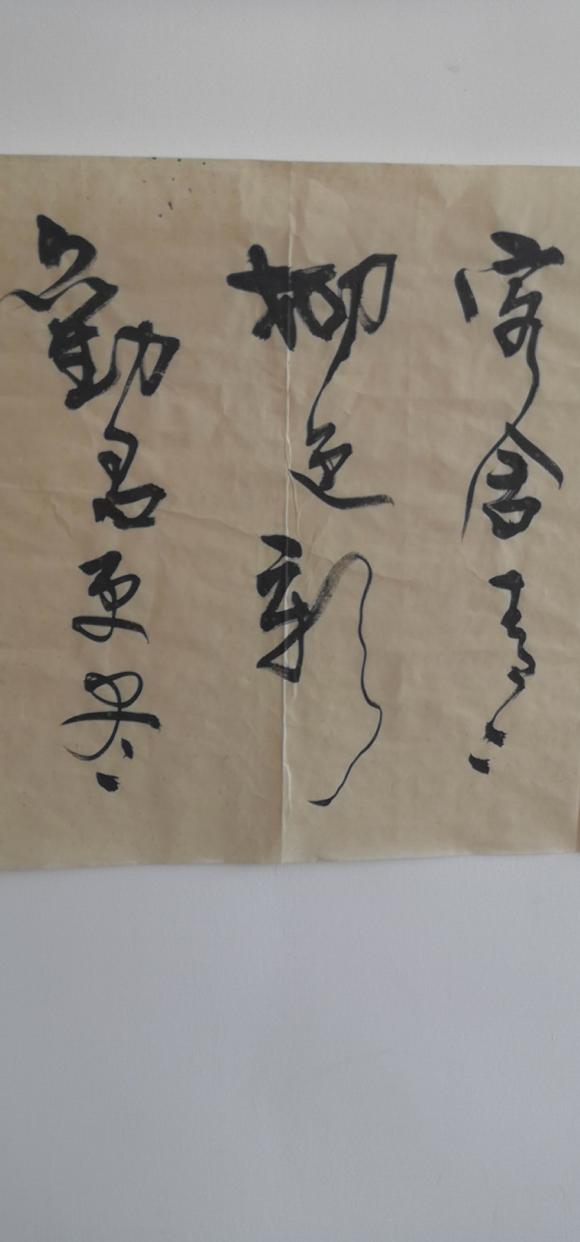 客舍青々
柳色新
勸君更尽